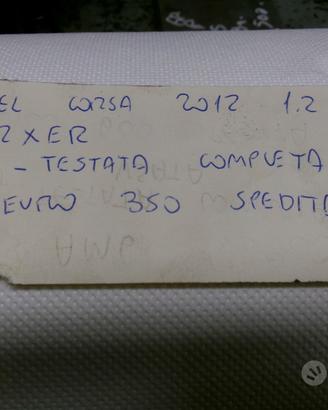 EL CORSA 2012 1.2
2XER
- TESTATA COMPLETA
EURO 350 SPEDIT